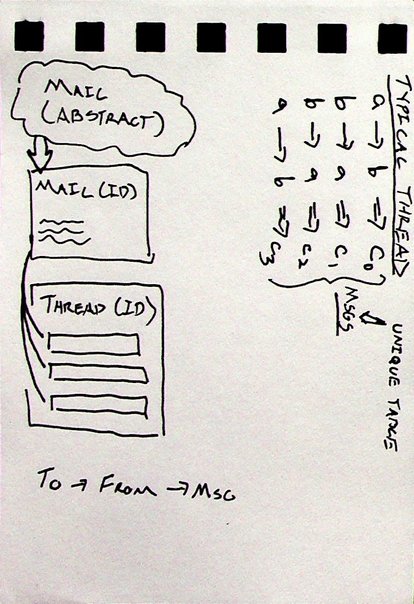 MAIL
(ABSTRACT)
MAIL (ID)
THREAD (ID)
TO → FROM → MSG
TYPICAL THREAD
a → b ⇒ C0
b → a ⇒ C1
b → a ⇒ C2
a → b ⇒ C3
MSGS
UNIQUE